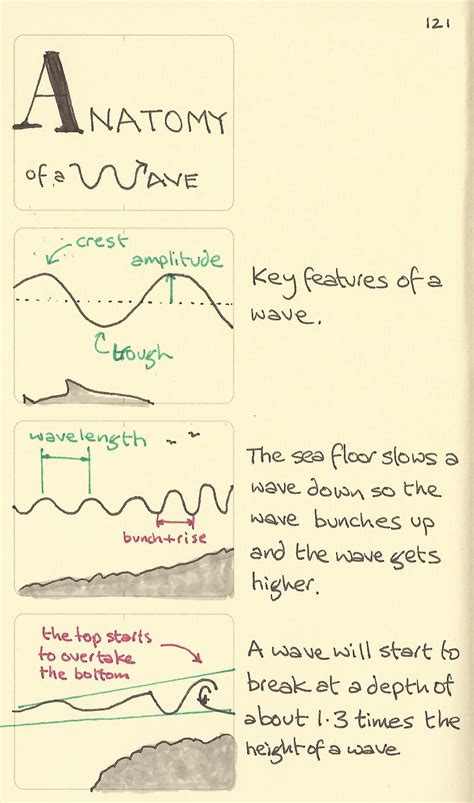 121
ANATOMY
of a WAVE
crest
amplitude
trough
Key features of a
wave.
wavelength
bunch+rise
The sea floor slows a
wave down so the
wave bunches up
and the wave gets
higher.
the top starts
to overtake
the bottom
A wave will start to
break at a depth of
about 1.3 times the
height of a wave